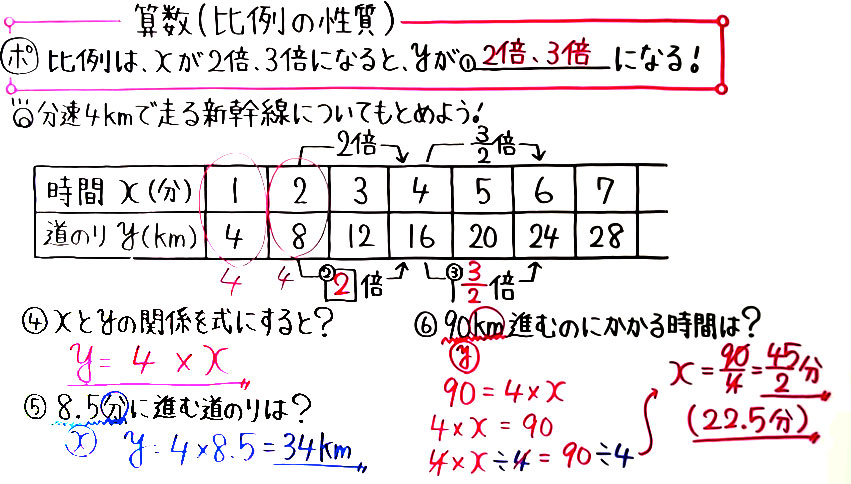 算数(比例の性質)
ポ 比例は、xが2倍、3倍になると、yが①2倍、3倍になる!
分速4kmで走る新幹線についてもとめよう!
2倍 3/2倍
時間 x(分) 1 2 3 4 5 6 7
道のり y(km) 4 8 12 16 20 24 28
4 4 ②2倍 ③3/2倍
④xとyの関係を式にすると?
y=4×x
⑤8.5分に進む道のりは?
x y=4×8.5=34km
⑥90km進むのにかかる時間は?
y
90=4×x
4×x=90
4×x÷4=90÷4
x=90/4=45/2分
(22.5分)